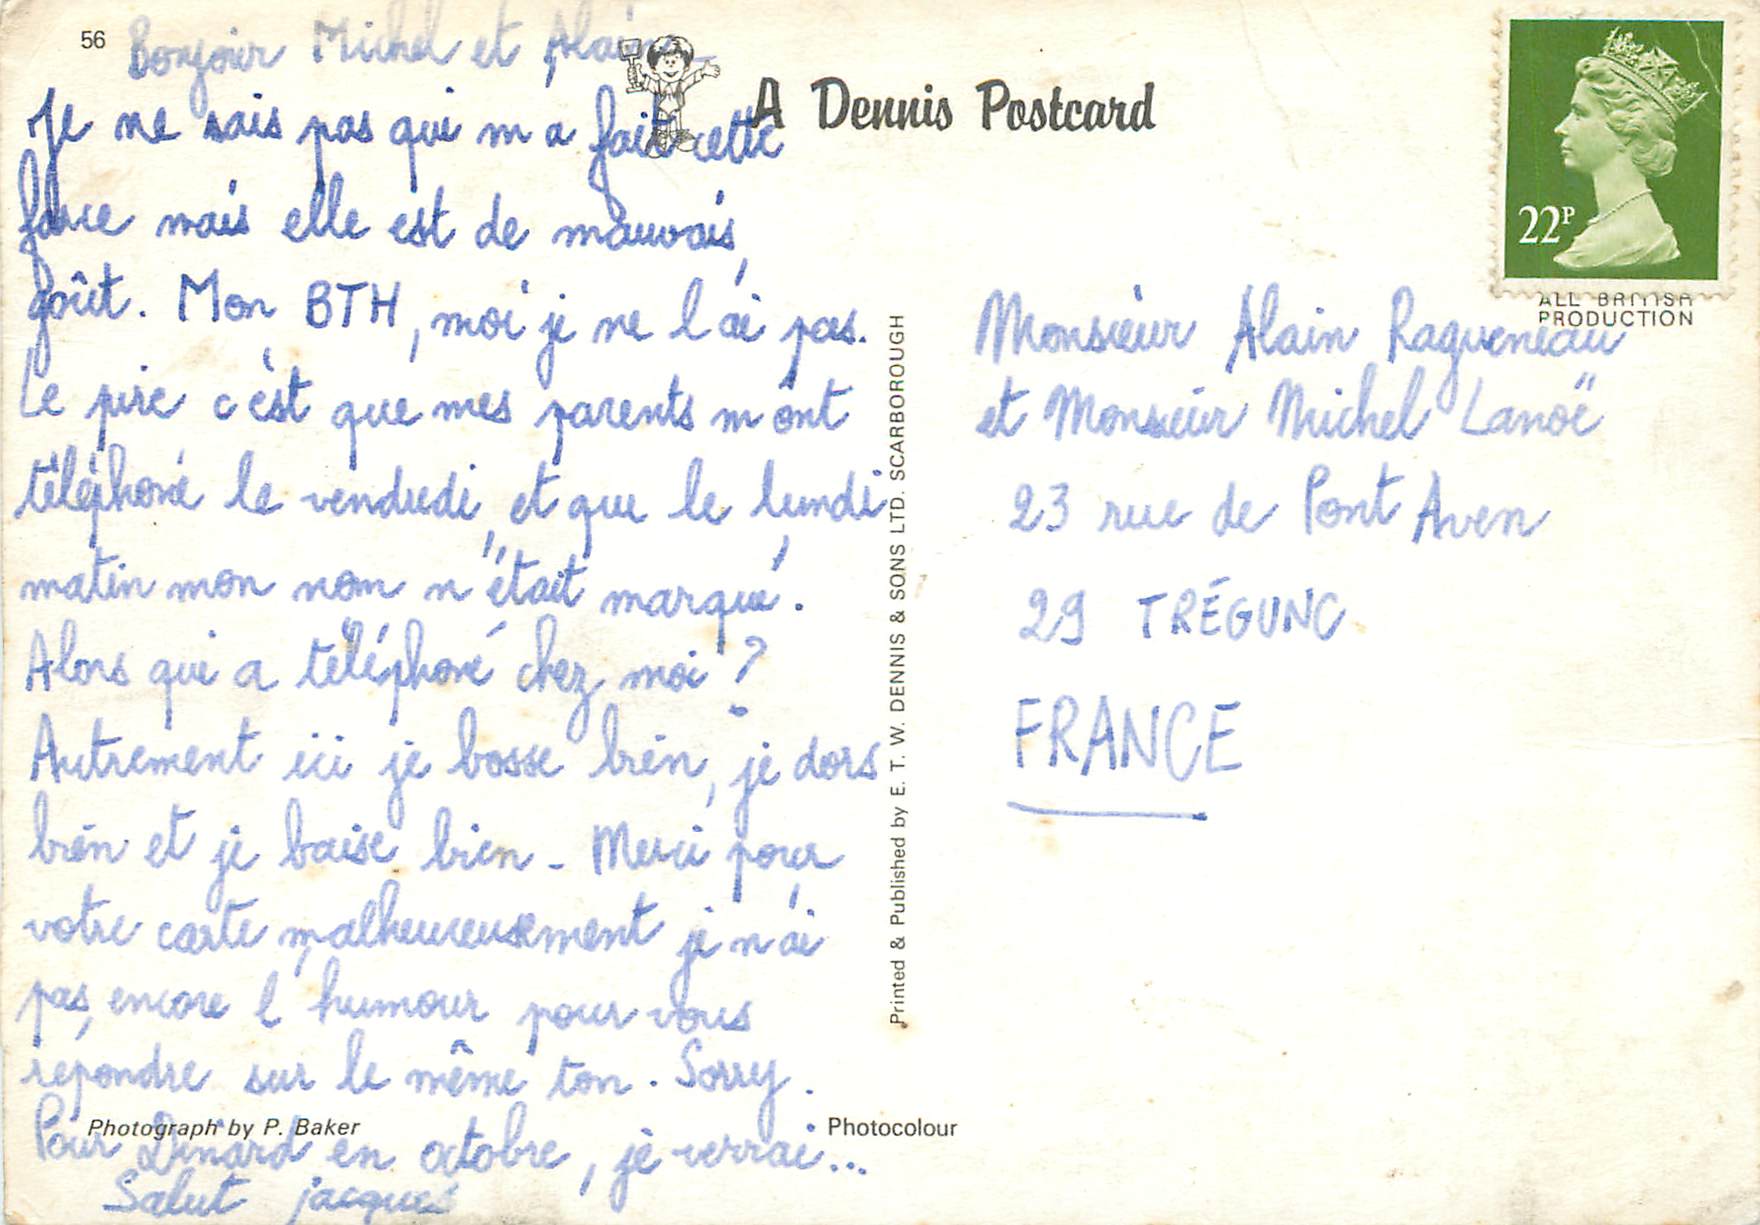 56
Bonjour Michel et Alain
A Dennis Postcard
Je ne sais pas qui m'a fait cette
farce mais elle est de mauvais
goût. Mon BTH, moi je ne l'ai pas.
Le pire c'est que mes parents m'ont
téléphoné le vendredi, et que le lundi
matin mon nom n'était marqué.
Alors qui a téléphoné chez moi ?
Autrement ici je bosse bien, je dors
bien et je baise bien - Merci pour
votre carte, malheureusement je n'ai
pas, encore l'humour pour vous
répondre sur le même ton. Sorry.
Pour Dinard en octobre, je verrai...
Salut jacques
Photograph by P. Baker
Photocolour
Printed & Published by E. T. W. DENNIS & SONS LTD. SCARBOROUGH
22P
ALL BRITISH
PRODUCTION
Monsieur Alain Ragueneau
et Monsieur Michel Lanoë
23 rue de Pont Aven
29 TRÉGUNC
FRANCE